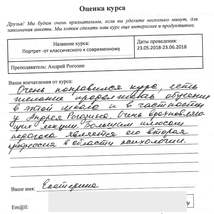 Оценка курса
Друзья! Мы будем очень признательны, если вы уделите несколько минут, для
заполнения анкеты. Мы хотим сделать наш курс еще интереснее и продуктивнее.
Название курса: Даты проведения:
Портрет -от классического к современному 21.05.2018-23.06.2018
Преподаватель: Андрей Рогозин
Ваше впечатление от курса:
Очень понравился курс, есть
желание продолжать обучение
в этой школе и в частности
у Андрея Рогозина. Очень вдохновляющие
лекции. Большим плюсом
является его вторая
профессия в области психологии.
Ваше имя: Екатерина
Email: